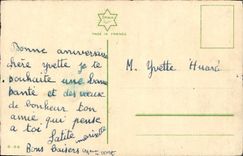 MADE IN FRANCE
Bonne aniversaire
chère yvette je te
souhaite une bonne
santé et des vœux
de bonheur ton
amie qui pense
a toi
Bons Baisers
M. Yvette Huaré